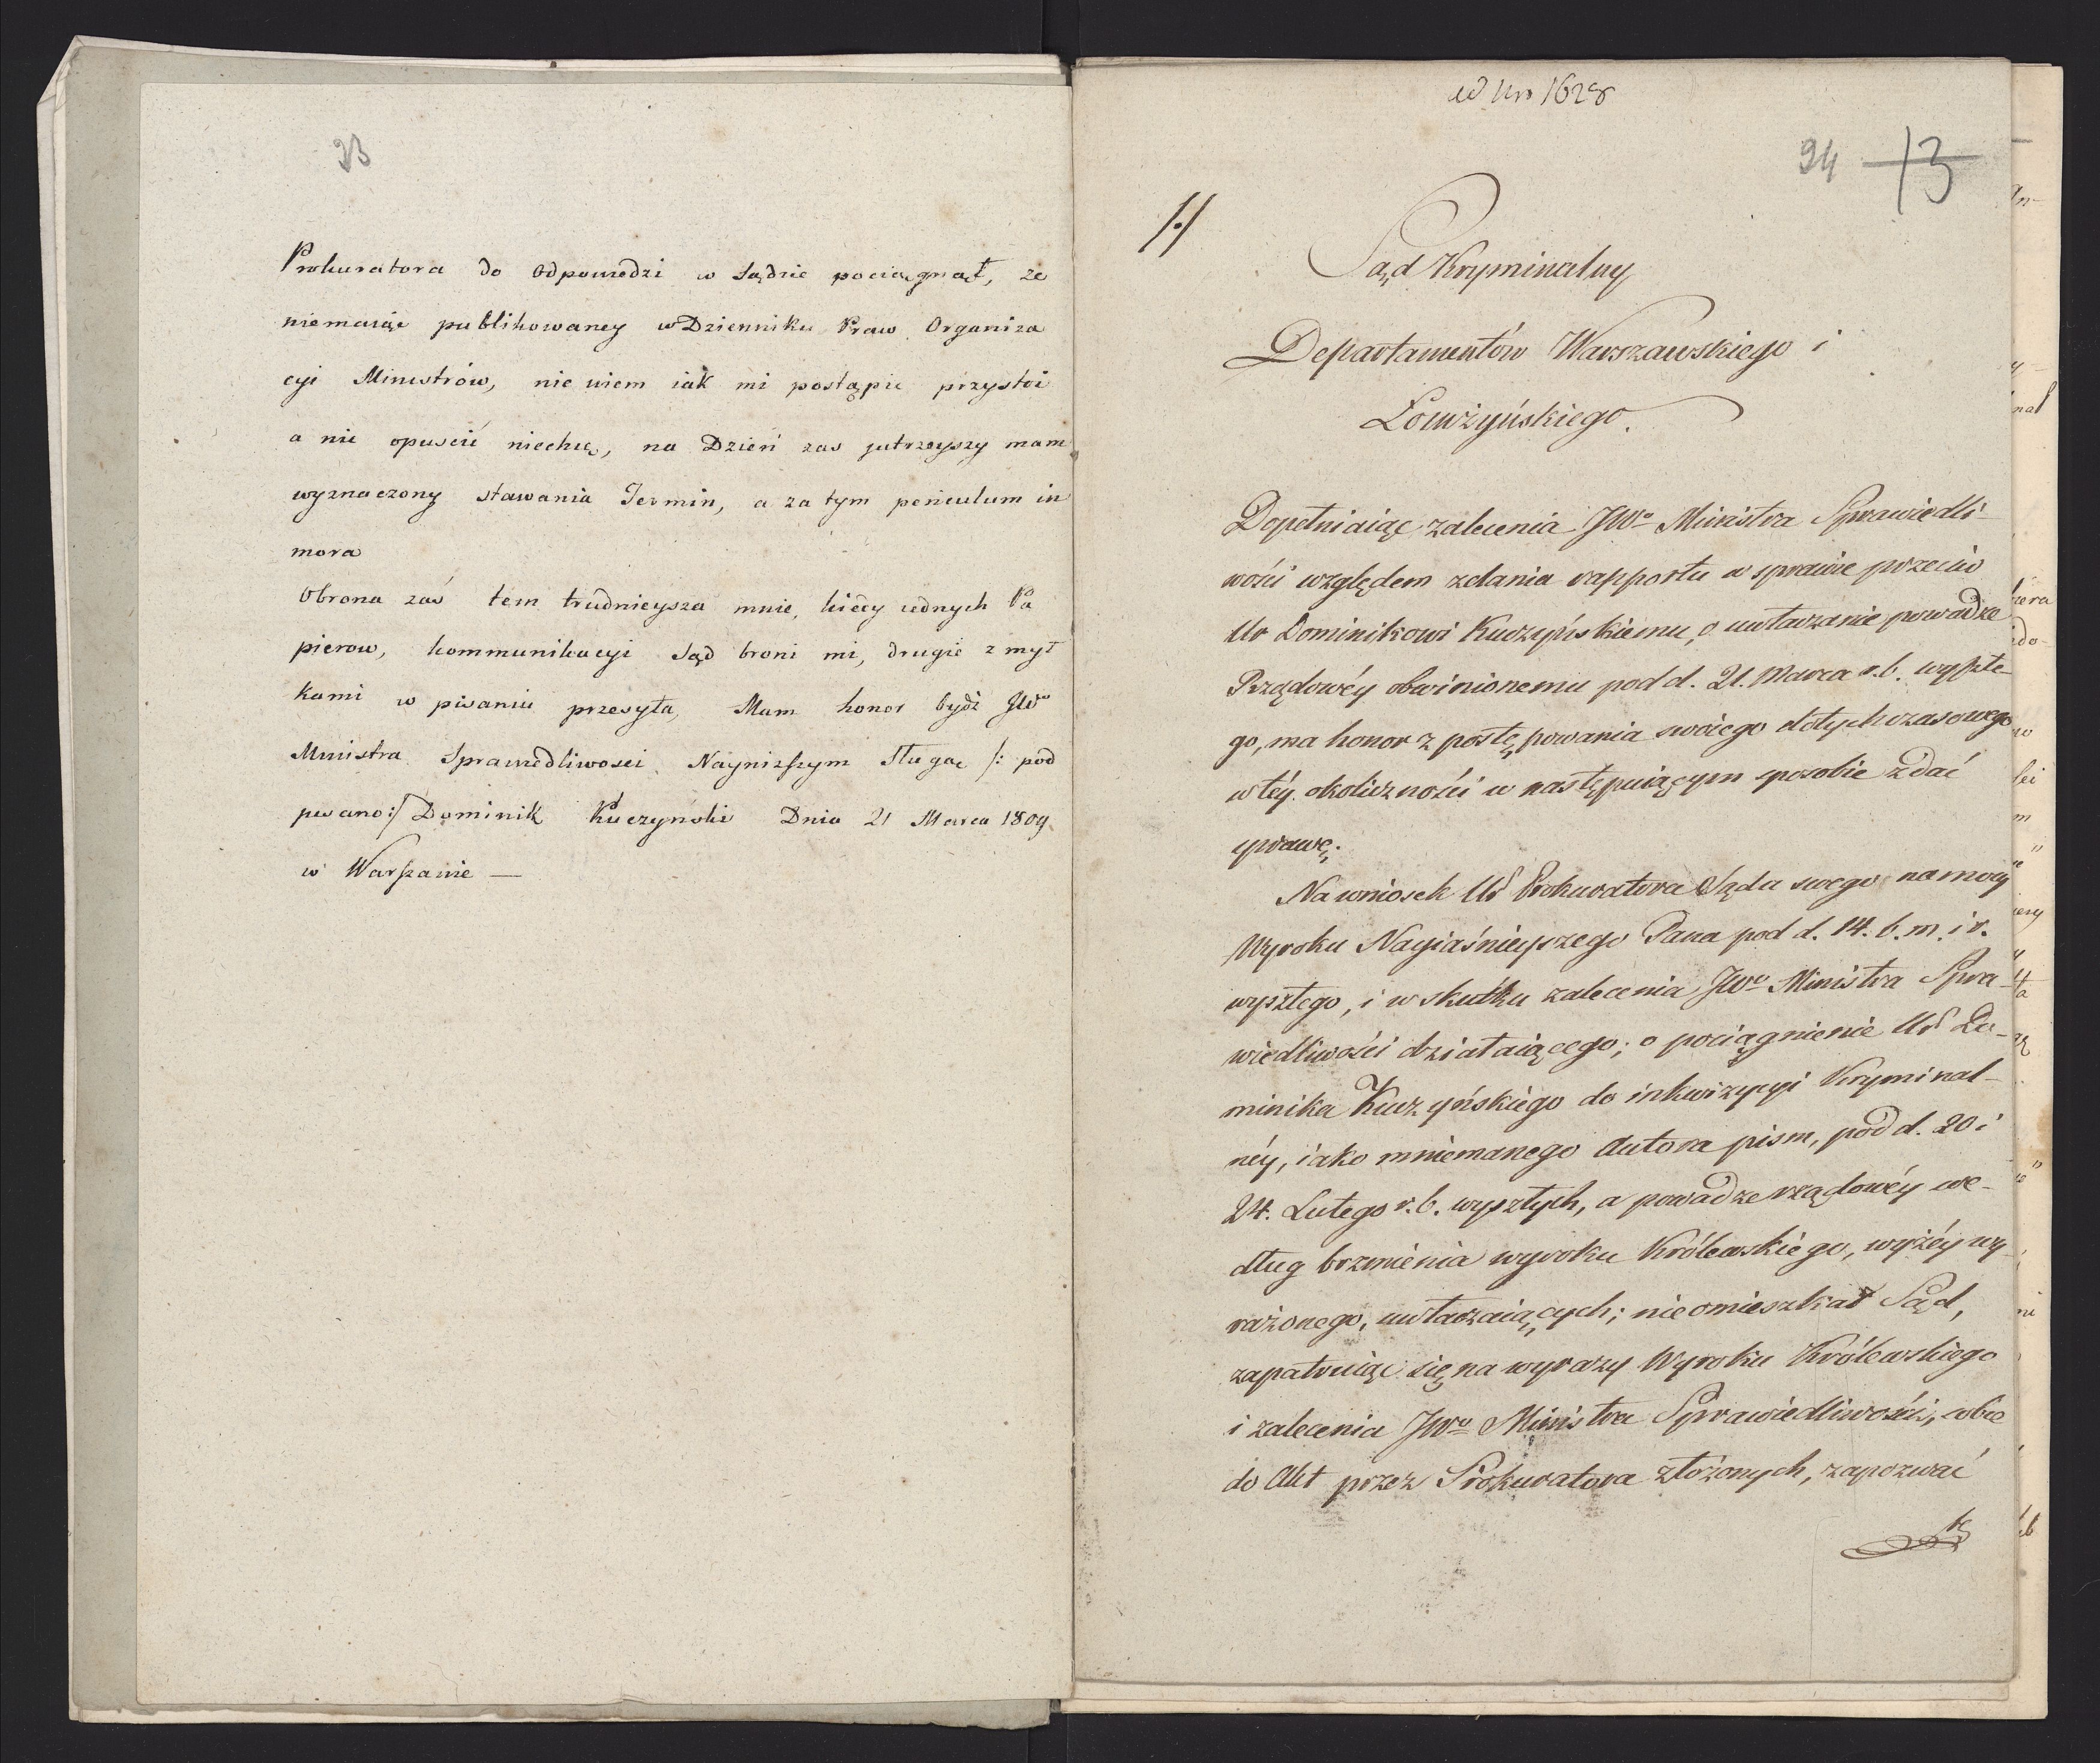 93
Prokuratora do Odpowiedzi w Sądzie pociągnął, że
niemaiąc publikowaney w Dzienniku Praw Organiza
cyi Ministrów, nie wiem iak mi postąpić przystoi
a nic opuścić niechcę, na Dzień zas jutrzeyszy mam
wyznaczony stawania Termin, a za tym periculum in
mora
Obrona zaś tem trudnieysza mnie, kiedy iednych Pa
pierow, kommunikacyi Sąd broni mi, drugie z mył
kami w pisaniu przesyła, Mam honor bydź JWo
Ministra Sprawiedliwosci Nayniższym Sługą /: pod
pisano :/ Dominik Kuczyński Dnia 21 Marca 1809
w Warszawie —
ad Nro 1628
94 13
Sąd Kryminalny
Departamentów Warszawskiego i
Łomżyńskiego.
Dopełniaiąc zalecenia JWo Ministra Sprawiedli-
wości względem zdania rapportu w sprawie przeciw
Ur Dominikowi Kuczyńskiemu, o uwłaczanie powadze
Rządowéy obwinionemu pod d. 21. Marca r. b. wyszłe-
go, ma honor z postępowania swoiego dotychczasowego
w téy okoliczności w następuiącym sposobie zdać
sprawę.
Na wniosek Ur Prokuratora Sądu swego na mocy
Wyroku Nayiaśnieyszego Pana pod d. 14. b. m. i r.
wyszłego, i w skutku zalecenia JWo Ministra Spra-
wiedliwości działaiącego; o pociągnienie Ur Do-
minika Kuczyńskiego do inkwizycyi Kryminal-
néy, iako mniemanego Autora pism, pod d. 20 i
24. Lutego r. b. wyszłych, a powadze rządowéy we-
dług brzmienia wyroku Królewskiego, wyżéy wy-
rażonego, uwłaczaiących; nieomieszkał Sąd,
zapatruiąc się na wyrazy Wyroku Królewskiego
i zalecenia JWo Ministra Sprawiedliwości, obie
do Akt przez Prokuratora złożonych, zapozwać